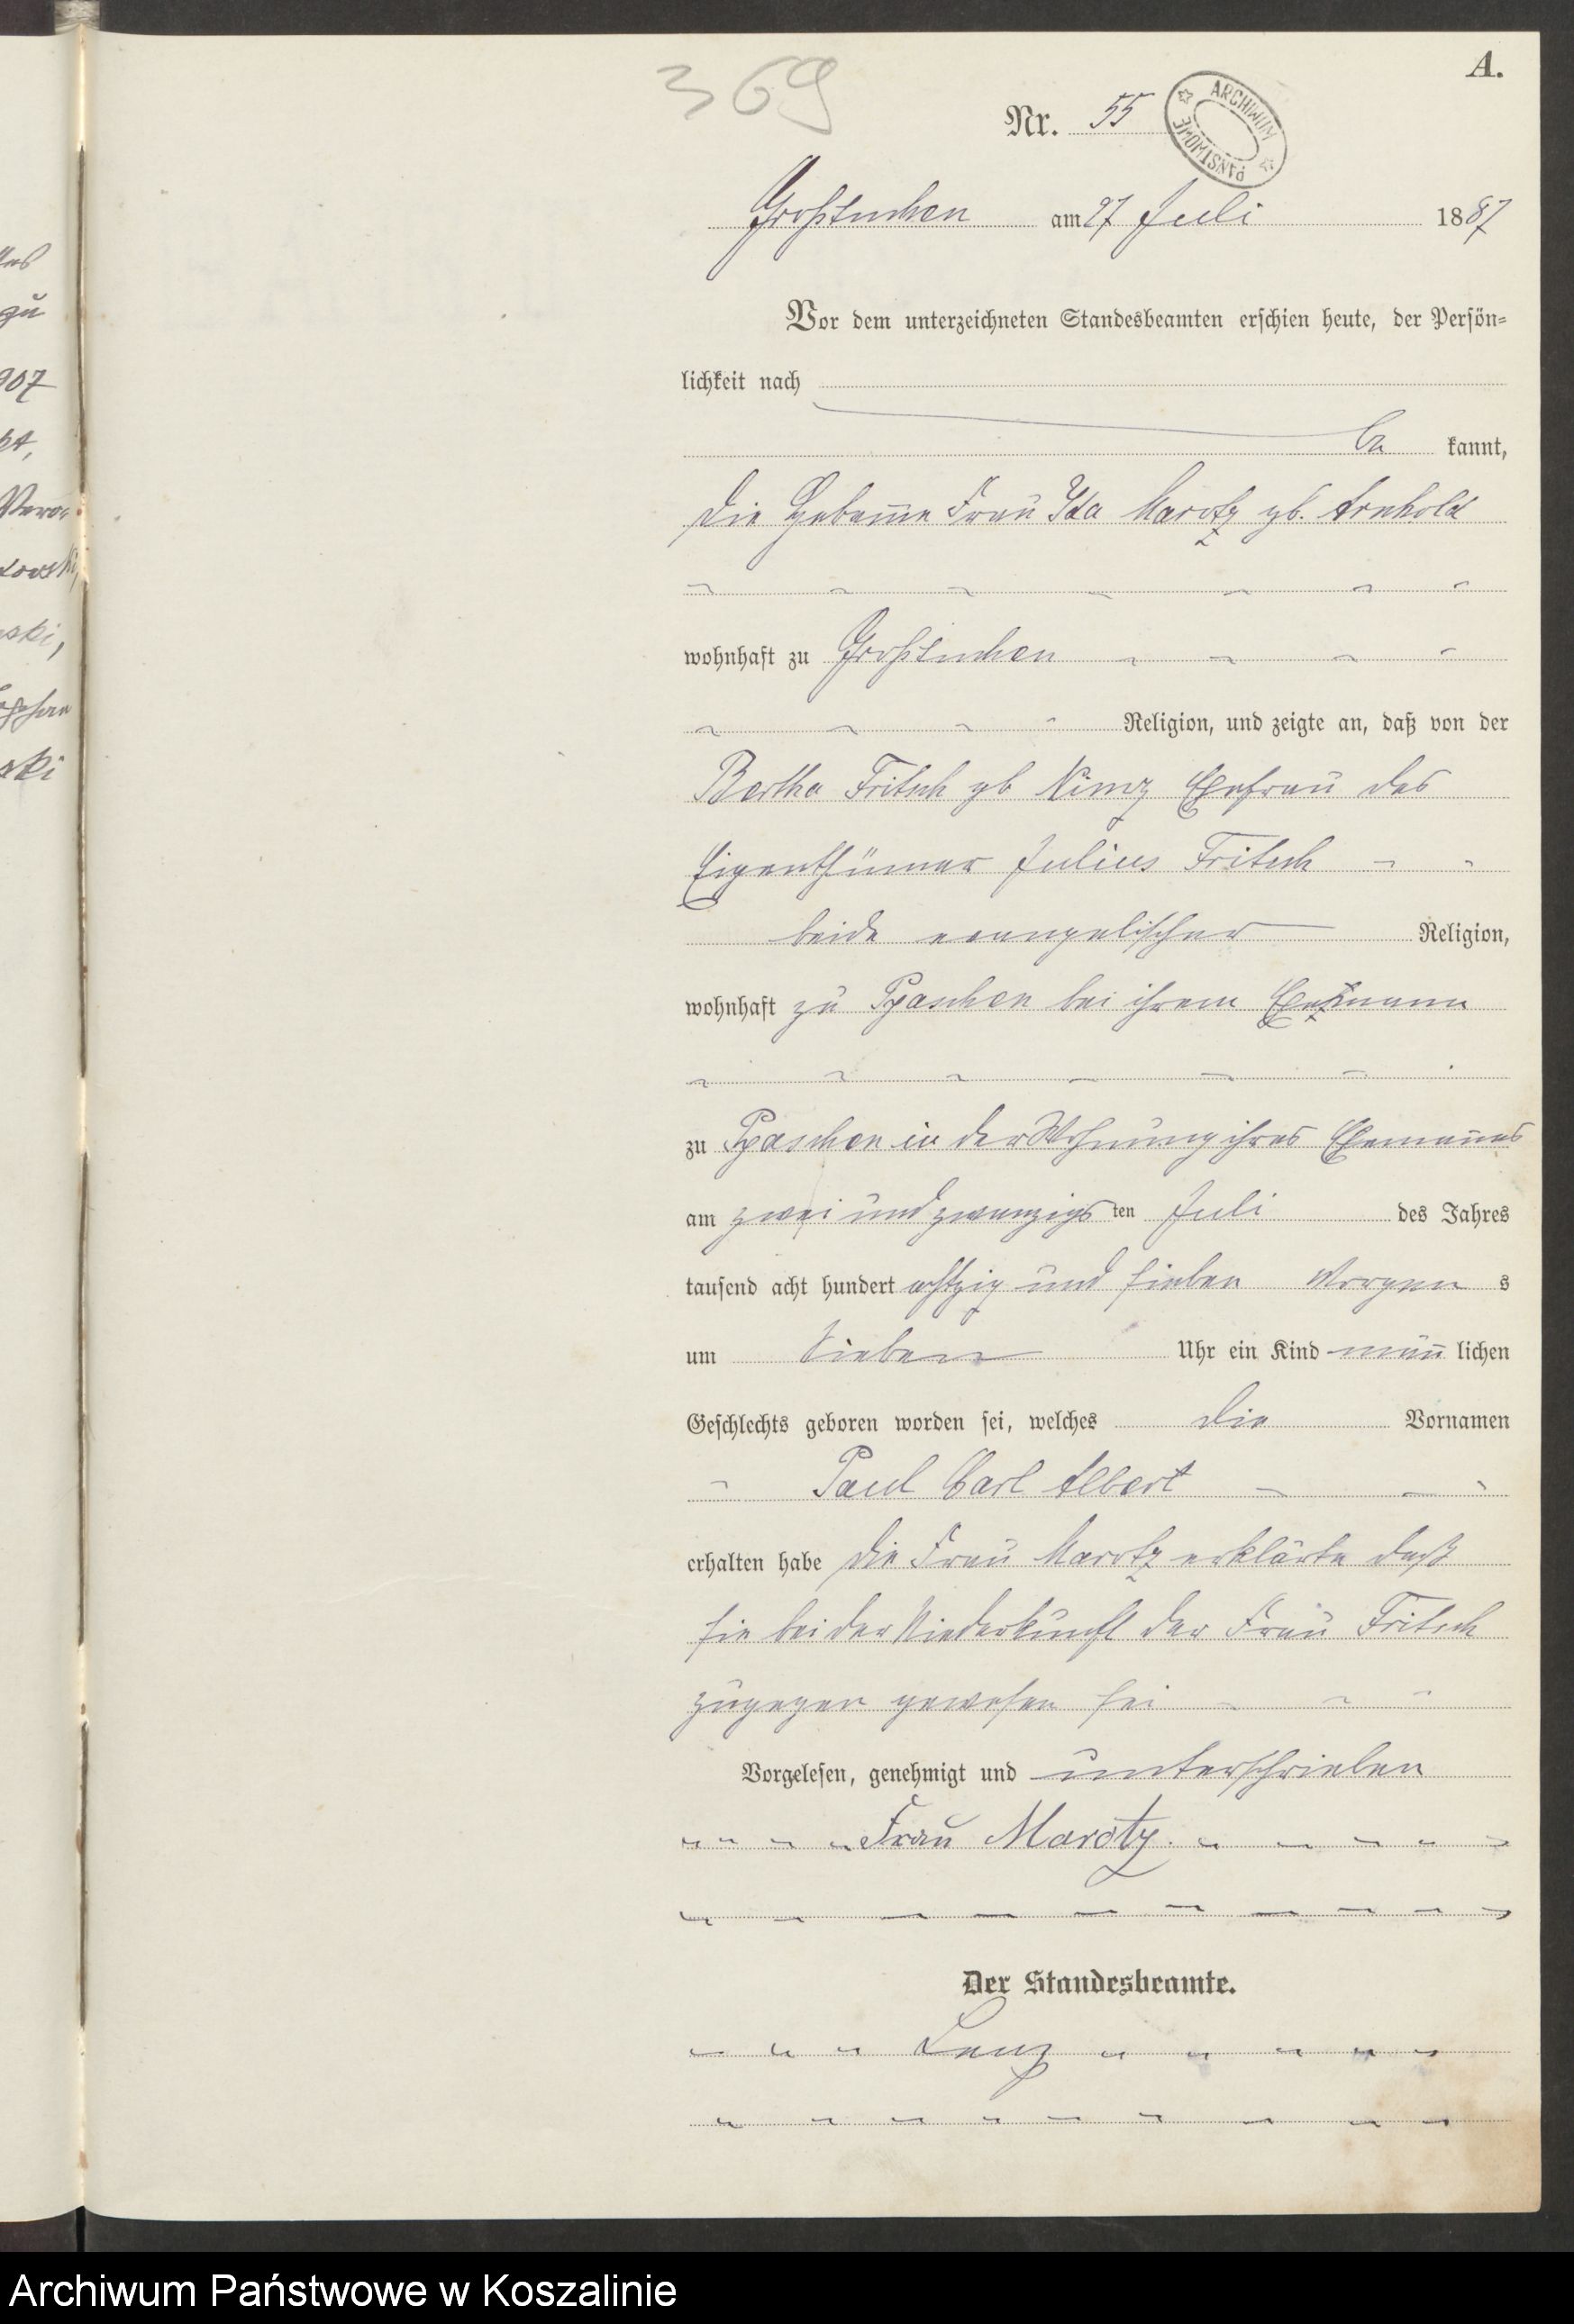 A.
369
Nr. 55
ARCHIWUM PAŃSTWOWE
Großtuchen am 27 Juli 1887
Vor dem unterzeichneten Standesbeamten erschien heute, der Persön-
lichkeit nach
be kannt,
die Hebamme Frau Ida Marotz gb. Arnhold
wohnhaft zu Großtuchen
Religion, und zeigte an, daß von der
Bertha Fritsch gb Nimz Ehefrau des
Eigenthümer Julius Fritsch
beide evangelischer Religion,
wohnhaft zu Pyaschen bei ihrem Ehemann
zu Pyaschen in der Wohnung ihres Ehemannes
am zwei und zwanzigs ten Juli des Jahres
tausend acht hundert achtzig und sieben Morgen s
um Sieben Uhr ein Kind männ lichen
Geschlechts geboren worden sei, welches die Vornamen
Paul Carl Albert
erhalten habe die Frau Marotz erklärte daß
sie bei der Niederkunft der Frau Fritsch
zugegen gewesen sei
Vorgelesen, genehmigt und unterschrieben
Frau Marotz.
Der Standesbeamte.
Lenz
zu
907
ski
Archiwum Państwowe w Koszalinie